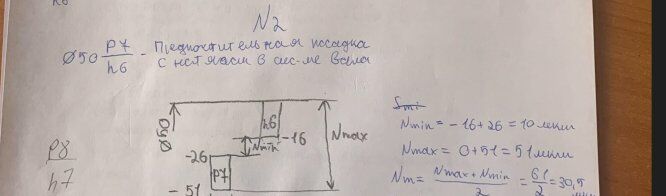 N2
Ø50 P7/h6 - Предпочтительная посадка
с натягом в сис-ме вала
P8/h7
Ø50
h6
-16
Nmin
Nmax
-26
P7
-51
Nmin = -16+26 = 10 мкм
Nmax = 0+51 = 51 мкм
Nm = Nmax + Nmin / 2 = 61/2 = 30,5